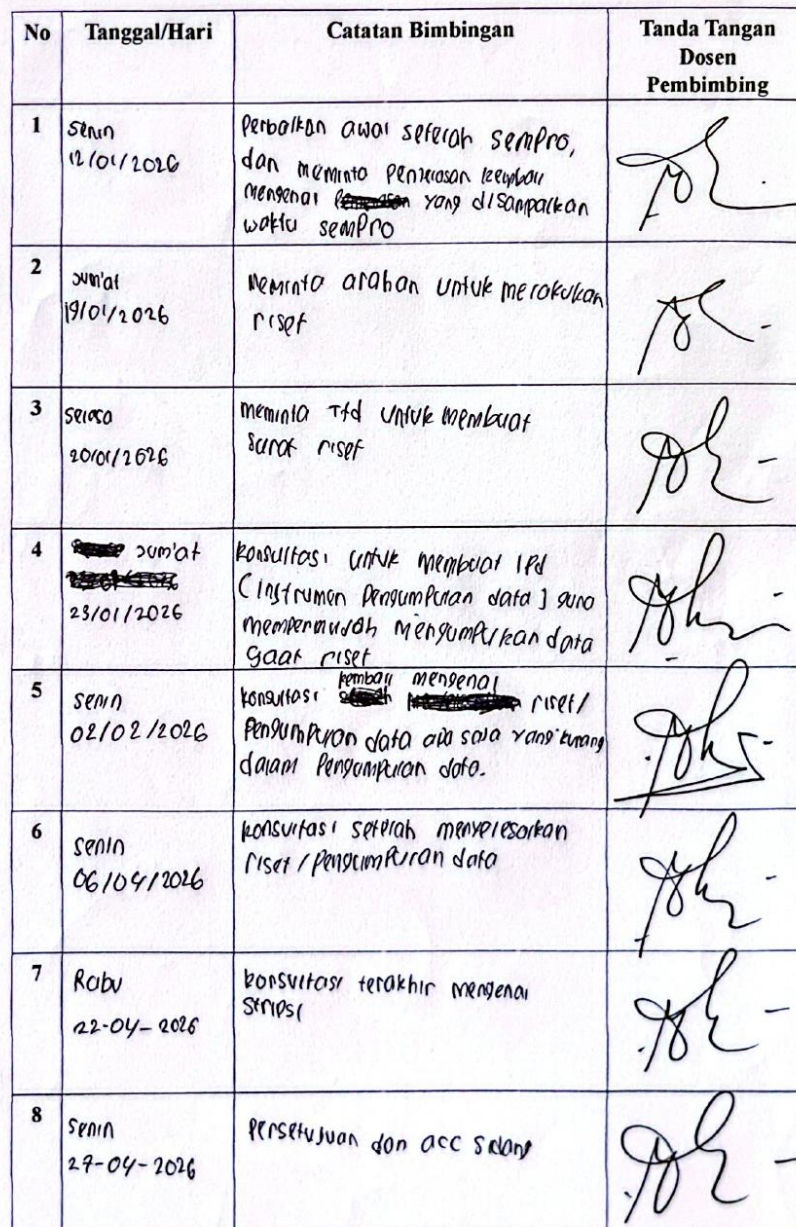 No Tanggal/Hari Catatan Bimbingan Tanda Tangan
Dosen
Pembimbing
1 Senin
12/01/2026
Perbaikan awal setelah sempro,
dan meminta penjelasan kembali
mengenai yang disampaikan
waktu sempro
2 Jum'at
19/01/2026
Meminta arahan untuk melakukan
riset
3 Selasa
20/01/2026
meminta Ttd untuk membuat
surat riset
4 Jum'at
23/01/2026
konsultasi untuk membuat IPd
(instrumen Pengumpulan data) guna
mempermudah mengumpulkan data
saat riset
5 Senin
02/02/2026
konsultasi kembali mengenai riset/
Pengumpulan data apa saja yang kurang
dalam Pengumpulan data.
6 Senin
06/04/2026
konsultasi setelah menyelesaikan
riset/pengumpulan data
7 Rabu
22-04-2026
konsultasi terakhir mengenai
skripsi
8 Senin
27-04-2026
Persetujuan dan acc sidang